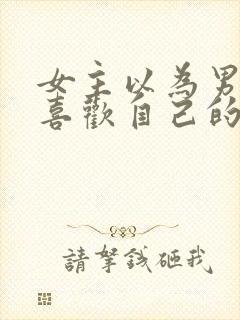 女主以為男
喜歡自己的
請拏錢砸我